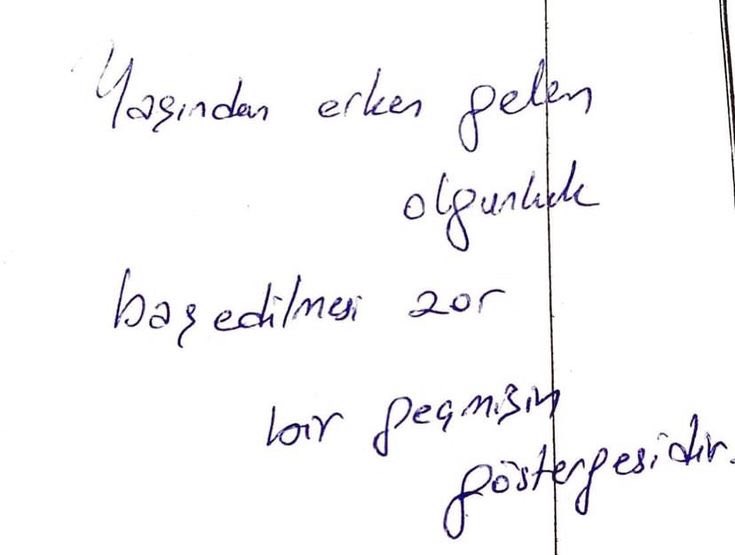 Yaşından erken gelen
olgunluk
baş edilmesi zor
bir geçmişin
göstergesidir.